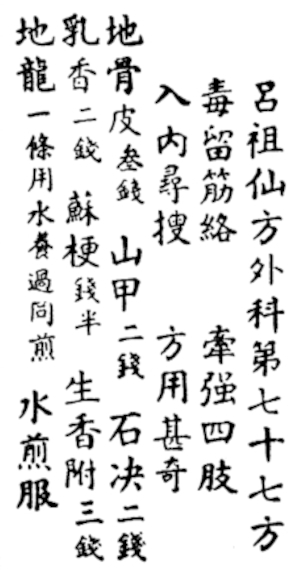 呂祖仙方外科第七十七方
毒留筋絡 牽强四肢
入內尋搜 方用甚奇
地骨皮叁錢 山甲二錢 石决二錢
乳香二錢 蘇梗錢半 生香附三錢
地龍一條用水養過同煎 水煎服